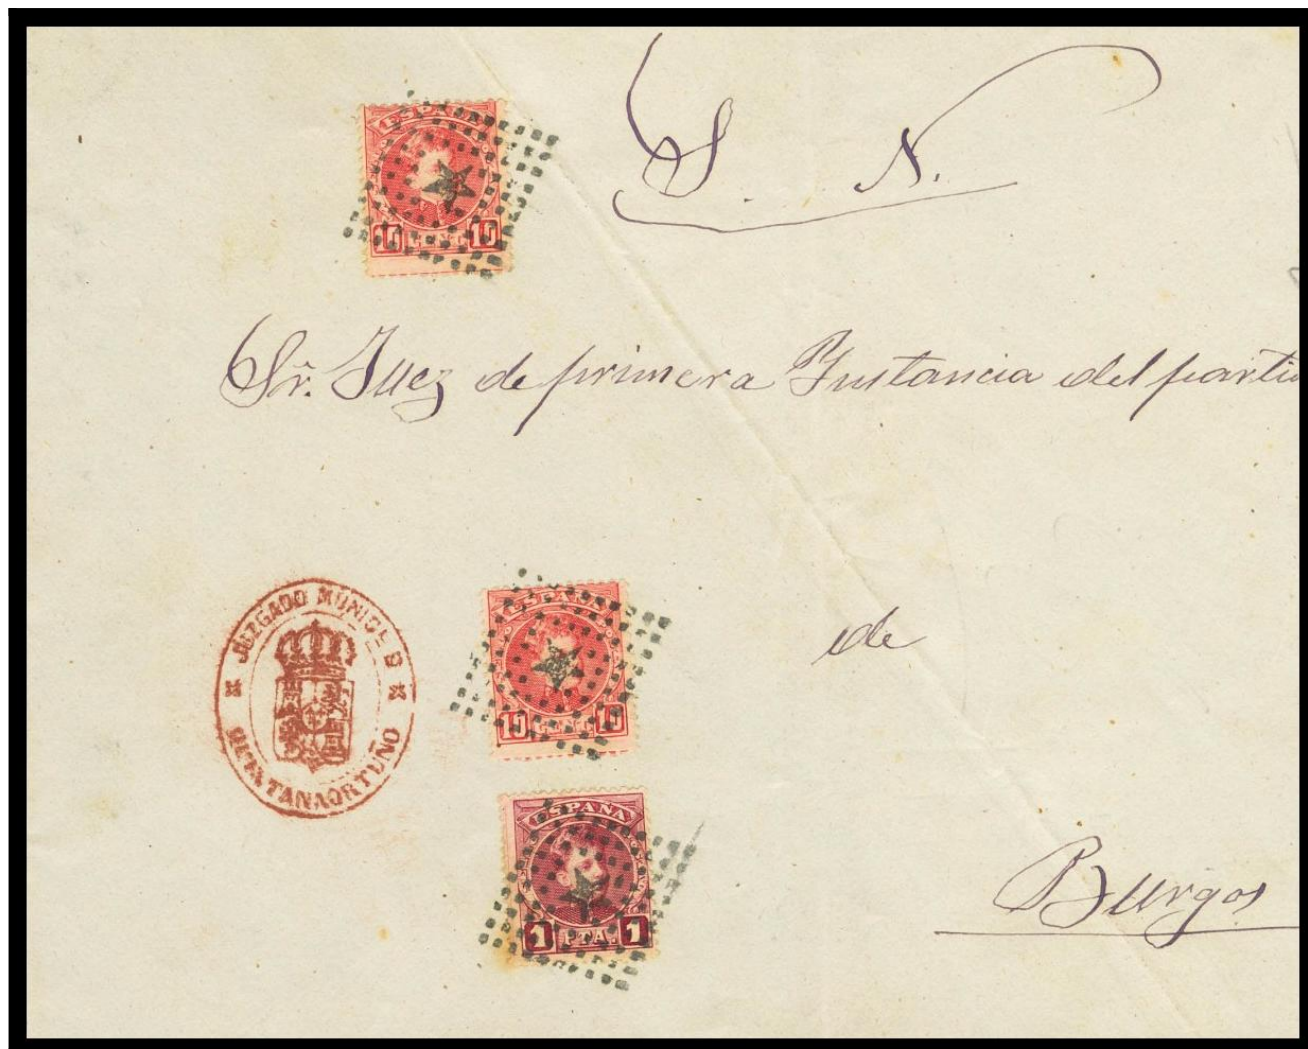 S. N.
ESPAÑA
10 CENT. 10
Sr. Juez de primera Instancia del partid
JUZGADO MUNICL D
QUINTANAORTUÑO
ESPAÑA
10 CENT. 10
de
ESPAÑA
1 PTA. 1
Burgos